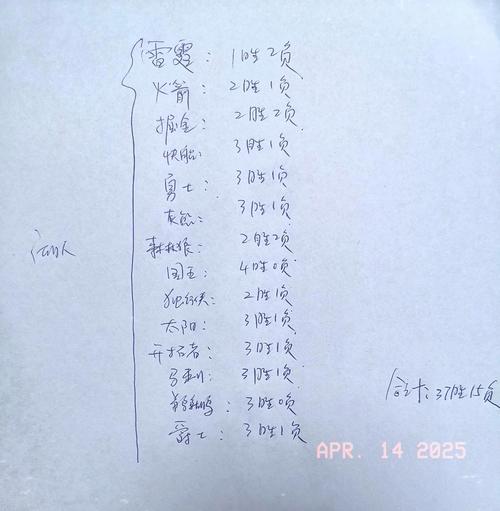 雷霆：1胜2负
火箭：2胜1负
掘金：2胜2负
快船 3胜1负
勇士：3胜1负
灰熊 3胜1负
森林狼：2胜2负
国王：4胜0负
独行侠：2胜1负
太阳：3胜1负
开拓者：3胜1负
马刺：3胜1负
鹈鹕：3胜0负
爵士：3胜1负
湖人
合计：37胜15负
APR. 14 2025